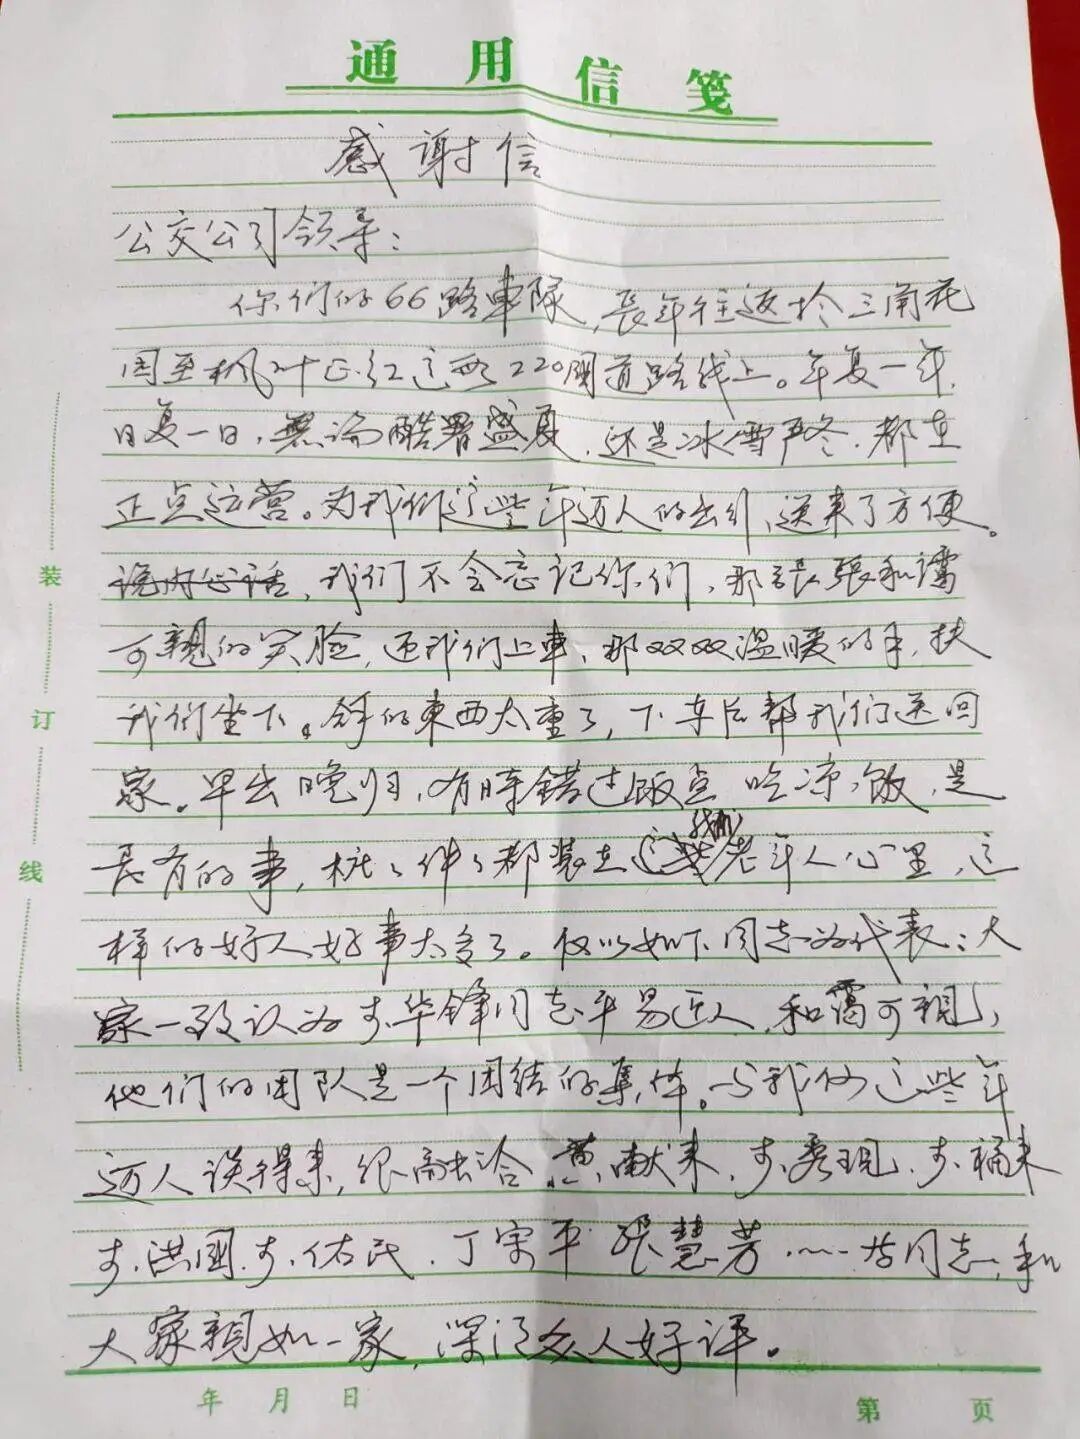 通用信笺
感谢信
公交公司领导：
你们的66路車隊，長年往返於三角花
园至枫叶正红这
道路线上。年复一年，
日复一日，無论酷暑盛夏，还是冰雪严冬，都在
正点运营。为我们这些年迈人的出行，送来了方便。
说内心话，我们不会忘记你们，那張張和藹
可親的笑脸，迎我们上車，那双双温暖的手，扶
我们坐下。拿的東西太重了，下车后帮我们送回
家。早出晚归，有時錯过飯点吃凉饭，是
長有的事，桩々件々都装在
我们
老年人心里，这
样的好人好事太多了。仅以如下同志为代表：大
家一致认为
华锋同志平易近人，和藹可親，
他们的团队是一个团结的集体。与我们这些年
迈人谈得来，很融洽
黄献来
洪國
佑民．丁宗平 張慧芳……等同志，和
大家親如一家，深得众人好评。
装
订
线
年 月 日
第 页